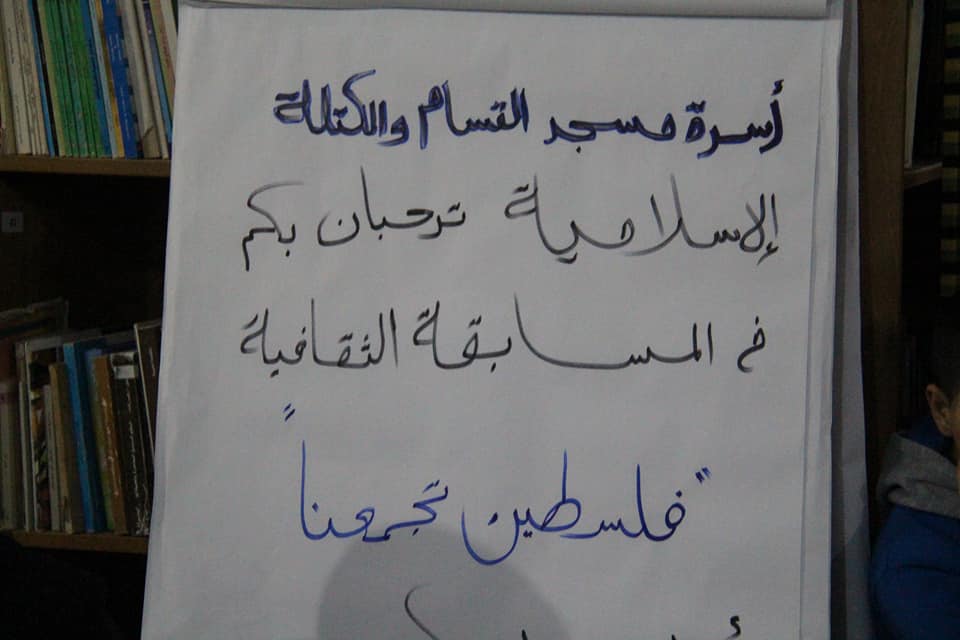 أسرة مسجد القسام والكتلة
الإسلامية ترحبان بكم
في المسابقة الثقافية
"فلسطين تجمعنا"